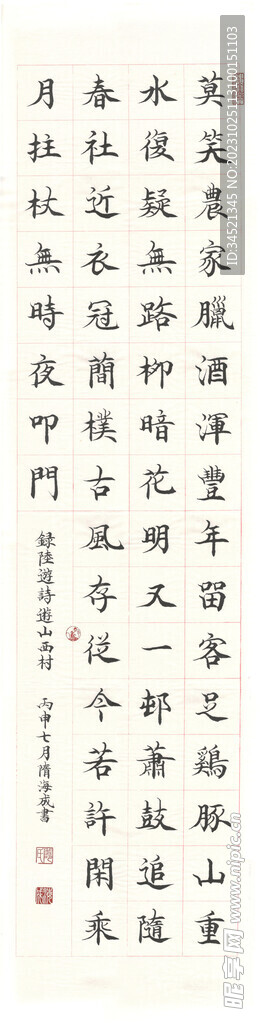 莫笑農家臘酒渾豐年留客足鷄豚山重
水復疑無路柳暗花明又一邨蕭鼓追隨
春社近衣冠簡樸古風存従今若許閑乘
月拄杖無時夜叩門
録陸遊詩遊山西村 丙申七月隋海成書
ID:34521345 NO:20231025113100151103
昵享网 www.nipic.cn